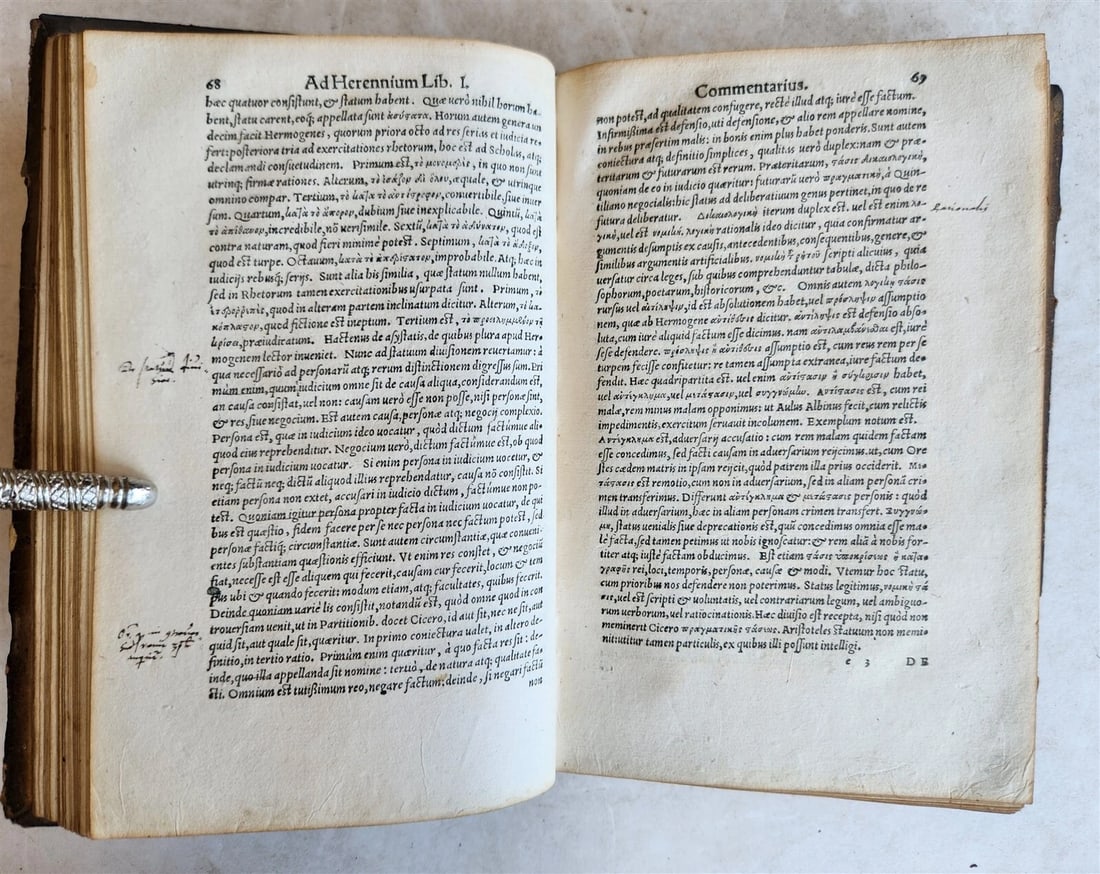 68 Ad Herennium Lib. I.
hæc quatuor consistunt, & statum habent. Quæ uerò nihil horum ha-
bent, statu carent, eoq; appellata sunt ἀσύστατα. Horum autem genera un
decim facit Hermogenes, quorum priora octo ad res serias et iudicia re-
fert: posteriora tria ad exercitationes rhetorum, hoc est ad Scholas, atq;
declamandi consuetudinem. Primum est, τὸ μονομερὲς, in quo non sunt
utrinq; firmæ rationes. Alterum, τὸ ἰσάζον δι᾽ ὅλου, æquale, & utrinque
omnino compar. Tertium, τὸ κατὰ τὸ ἀντίστρεφον, conuertibile, siue inuer
sum. Quartum, κατὰ τὸ ἄπορον, dubium siue inexplicabile. Quintũ, κατὰ
τὸ ἀπίθανον, incredibile, nõ uerisimile. Sextũ, κατὰ τὸ ἀδύνατον, quod est
contra naturam, quod fieri minimè potest. Septimum, κατὰ τὸ ἄδοξον,
quod est turpe. Octauum, κατὰ τὸ ἀπερίστατον, improbabile. Atq; hæc in
iudicijs rebusq́; serijs. Sunt alia his similia, quæ statum nullum habent,
sed in Rhetorum tamen exercitationibus usurpata sunt. Primum, τὸ
ἑτερορρεπὲς, quod in alteram partem inclinatum dicitur. Alterum, τὸ κα
κόπλαστον, quod fictione est ineptum. Tertium est, τὸ προειλημμένον τῇ
κρίσει, præiudicatum. Hactenus de asystatis, de quibus plura apud Her-
mogenem lector inueniet. Nunc ad statuum diuisionem reuertamur: à
qua necessariò ad personarũ atq; rerum distinctionem digressus sum. Pri
mùm enim, quum iudicium omne sit de causa aliqua, considerandum est,
an causa consistat, uel non: causam uerò esse non posse, nisi personæ sint,
& res, siue negocium. Est autem causa, personæ atq; negocij complexio.
Persona est, quæ in iudicium ideo uocatur, quòd dictum factúmue ali-
quod eius reprehenditur. Negocium uerò, dictum factúmue est, ob quod
persona in iudicium uocatur. Si enim persona in iudicium uocetur, &
neq; factũ neq; dictũ aliquod illius reprehendatur, causa nõ consistit. Si
etiam persona non extet, accusari in iudicio dictum, factúmue non po-
test. Quoniam igitur persona propter facta in iudicium uocatur, de qui
bus est quæstio, fidem facere per se nec persona nec factum potest, sed
personæ factiq́; circumstantiæ. Sunt autem circumstantiæ, quæ conueni-
entes substantiam quæstionis efficiunt. Vt enim res constet, & negociũ
fiat, necesse est esse aliquem qui fecerit, causam cur fecerit, locum & tem
pus ubi & quando fecerit: modum etiam, atq; facultates, quibus fecerit.
Deinde quoniam uariè lis consistit, notandũ est, quòd omne quod in con
trouersiam uenit, ut in Partitionib. docet Cicero, id aut sit, nec ne sit, aut
quid sit, aut quale sit, quæritur. In primo coniectura ualet, in altero de-
finitio, in tertio ratio. Primùm enim quæritur, à quo facta res sit: de-
inde, quo illa appellanda sit nomine: tertiò, de natura atq; qualitate fa-
cti. Omnium est tutißimum reo, negare factum: deinde, si negari factũ
non
Commentarius. 69
non potest, ad qualitatem confugere, rectè illud atq; iurè esse factum.
Infirmißima est defensio, uti defensione, & alio rem appellare nomine,
in rebus præsertim malis: in bonis enim plus habet ponderis. Sunt autem
coniectura atq; definitio simplices, qualitas uerò duplex: nam & præ-
teritarum & futurarum est rerum. Præteritarum, στάσις δικαιολογικὴ,
quoniam de eo in iudicio quæritur: futurarũ uerò πραγματικὴ, à Quin-
tiliano negocialis: hic status ad deliberatiuum genus pertinet, in quo de re
futura deliberatur. Δικαιολογικὴ iterum duplex est. uel est enim λο-
γικὴ, uel νομική. λογικὴ rationalis ideo dicitur, quia confirmatur ar-
Rationalis
gumentis desumptis ex causis, antecedentibus, consequentibus, genere, &
similibus argumentis artificialibus. νομικὴ ἢ ῥητοῦ scripti alicuius, quia
uersatur circa leges, sub quibus comprehenduntur tabulæ, dicta philo-
sophorum, poetarum, historicorum, &c. Omnis autem λογικὴ στάσις
rursus uel ἀντίληψιν, id est absolutionem habet, uel πρόσληψιν assumptio
nem, quæ ab Hermogene ἀντίθεσις dicitur. ἀντίληψις est defensio abso-
luta, cum iurè aliquid factum esse dicimus. nam ἀντιλαμβάνεσθαι est, iurè
sese defendere. πρόσληψις ἢ ἀντίθεσις assumptio est, cum reus rem per se
turpem fecisse confitetur: re tamen assumpta extranea, iure factum de-
fendit. Hæc quadripartita est. uel enim ἀντίστασιν ἢ σύγκρισιν habet,
uel ἀντέγκλημα, uel μετάστασιν, uel συγγνώμην. Αντίστασις est, cum rei
malæ, rem minus malam opponimus: ut Aulus Albinus fecit, cum relictis
impedimentis, exercitum seruauit incolumen. Exemplum notum est.
Αντέγκλημα est, aduersarij accusatio: cum rem malam quidem factam
esse concedimus, sed facti causam in aduersarium reijcimus. ut, cum Ore
stes cædem matris in ipsam reijcit, quòd patrem illa prius occiderit. Με
τάστασις est remotio, cum non in aduersarium, sed in aliam personã cri-
men transferimus. Differunt ἀντέγκλημα & μετάστασις personis: quòd
illud in aduersarium, hæc in aliam personam crimen transfert. Συγγνώ-
μη, status uenialis siue deprecationis est, quũ concedimus omnia esse ma-
lè facta, sed tamen petimus ut nobis ignoscatur: & rem aliã à nobis for-
titer atq; iustè factam obducimus. Est etiam
rei, loci, temporis, personæ, causæ & modi. Vtemur hoc statu,
cum prioribus nos defendere non poterimus. Status legitimus, νομικὴ στά
σις, uel est scripti & voluntatis, uel contrariarum legum, uel ambiguo-
rum uerborum, uel ratiocinationis. Hæc diuisio est recepta, nisi quòd non
meminerit Cicero πραγματικῆς στάσεως. Aristoteles statuum non memi-
nit: utitur tamen particulis, ex quibus illi possunt intelligi.
e 3 DE